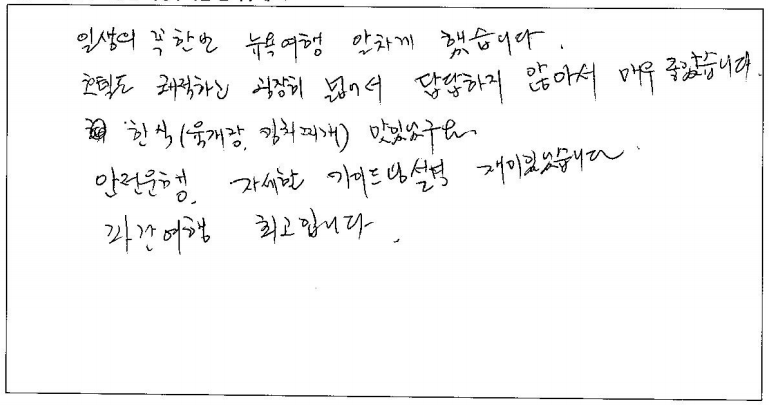 일생의 꼭한번 뉴욕여행 알차게 했습니다.
호텔도 쾌적하는 굉장히 넓어서 답답하지 않아서 매우 좋았습니다.
한식(육개장, 김치찌개) 맛있었구요.
안전운행, 자세한 가이드님설명 재미있었습니다.
여행 최고입니다.